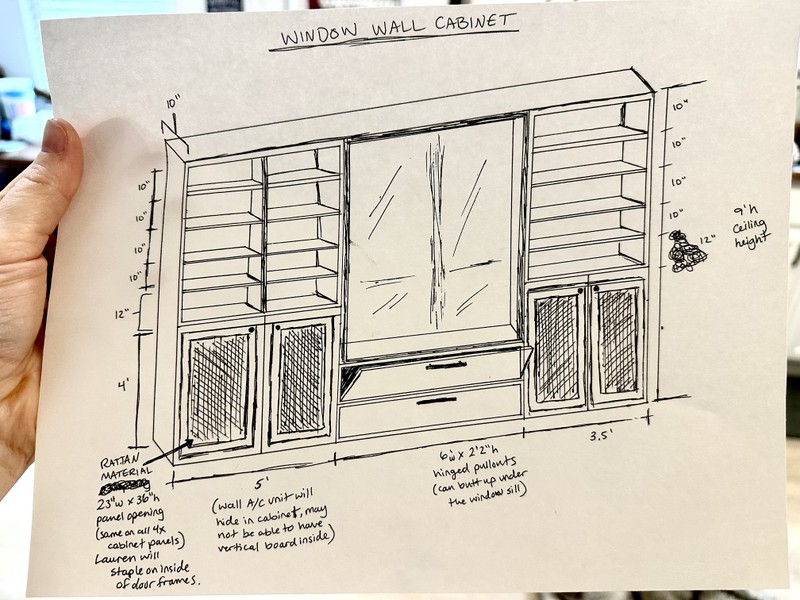 WINDOW WALL CABINET
10"
10"
10"
10"
10"
12"
4'
10"
10"
10"
10"
12"
9'h
Ceiling
height
RATTAN
MATERIAL
23"w x 36"h
panel opening
(same on all 4x
cabinet panels)
Lauren will
staple on inside
of door frames.
5'
(wall A/C unit will
hide in cabinet, may
not be able to have
vertical board inside)
6'w x 2'2"h
hinged pullouts
(can butt up under
the window sill)
3.5'